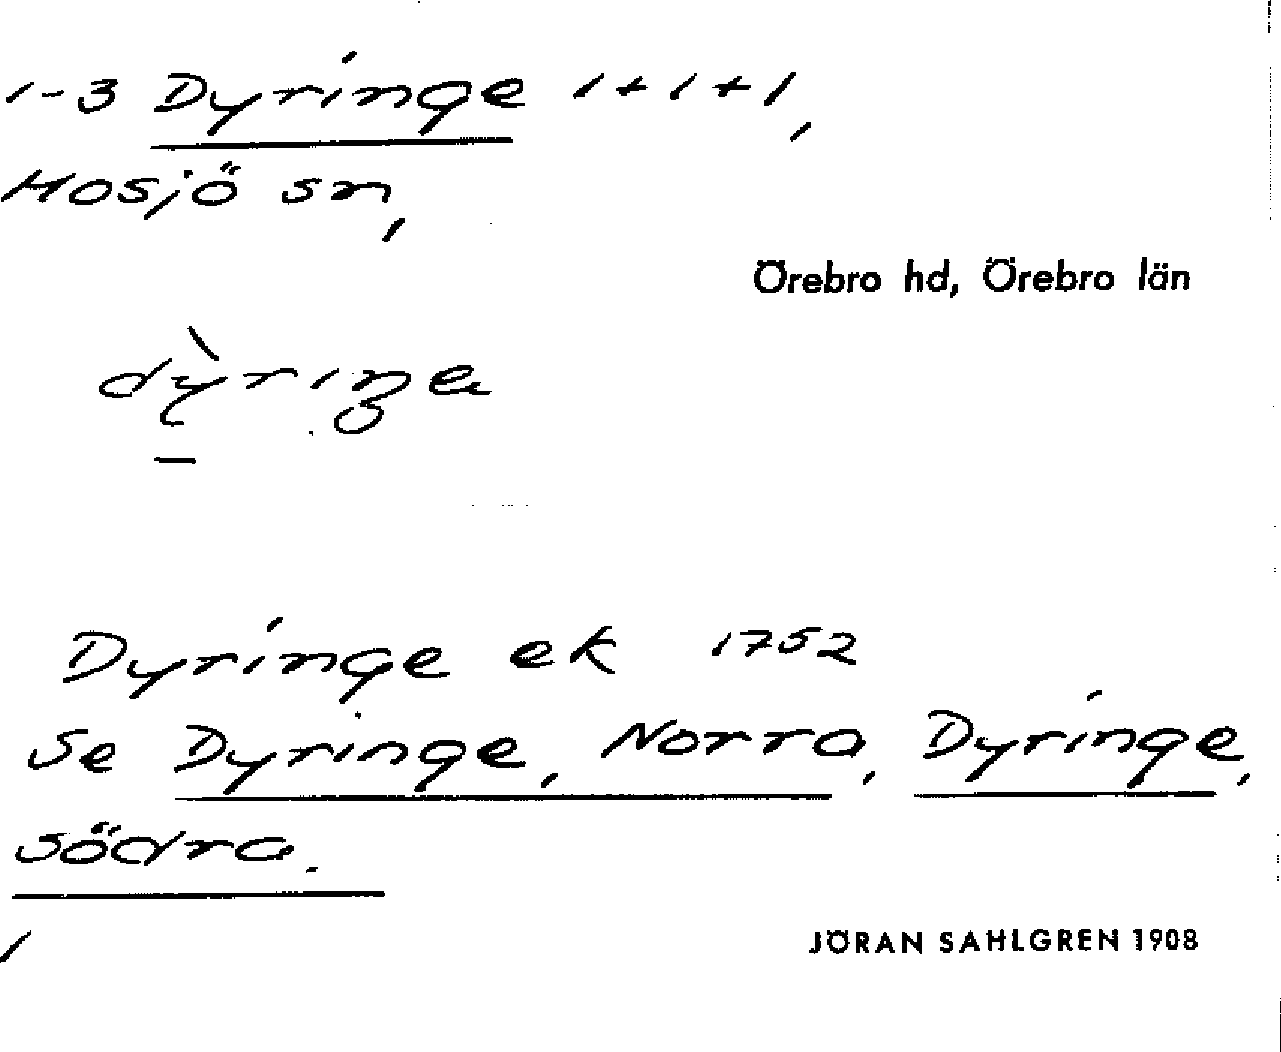 1-3 Dyringe 1+1+1,
Mosjö sn,
Örebro hd, Örebro län
dỳriŋe
Dyringe ek 1752
Se Dyringe, Norra, Dyringe,
södra.
JÖRAN SAHLGREN 1908